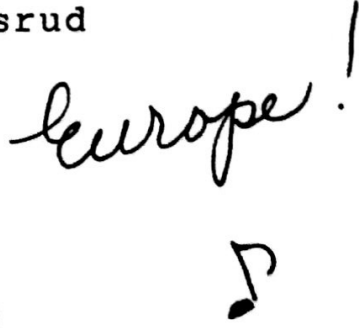 srud
Europe!
♪